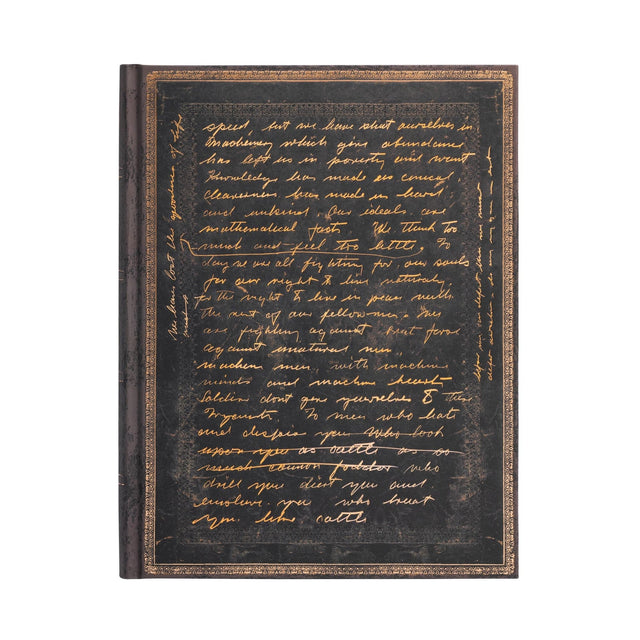 speed, but we have shut ourselves in
Machinery which gives abundance
has left us in poverty and want
Knowledge has made us cynical
cleverness has made us hard
and unkind. Our ideals are
mathematical facts. We think too
much and feel too little, To
day we are all fighting for our souls
for our right to live naturally,
for the right to live in peace with
the rest of our fellowmen.
are fighting against force
against unatural men,
machen men, with machine
minds and machine hearts
Soldiers dont give yourselves to these
To men who hate
and despise you who look
upon you as cattle as so
much cannon fodder who
drill you diect you and
enslave you who treat
you like cattle
We have lost the of life